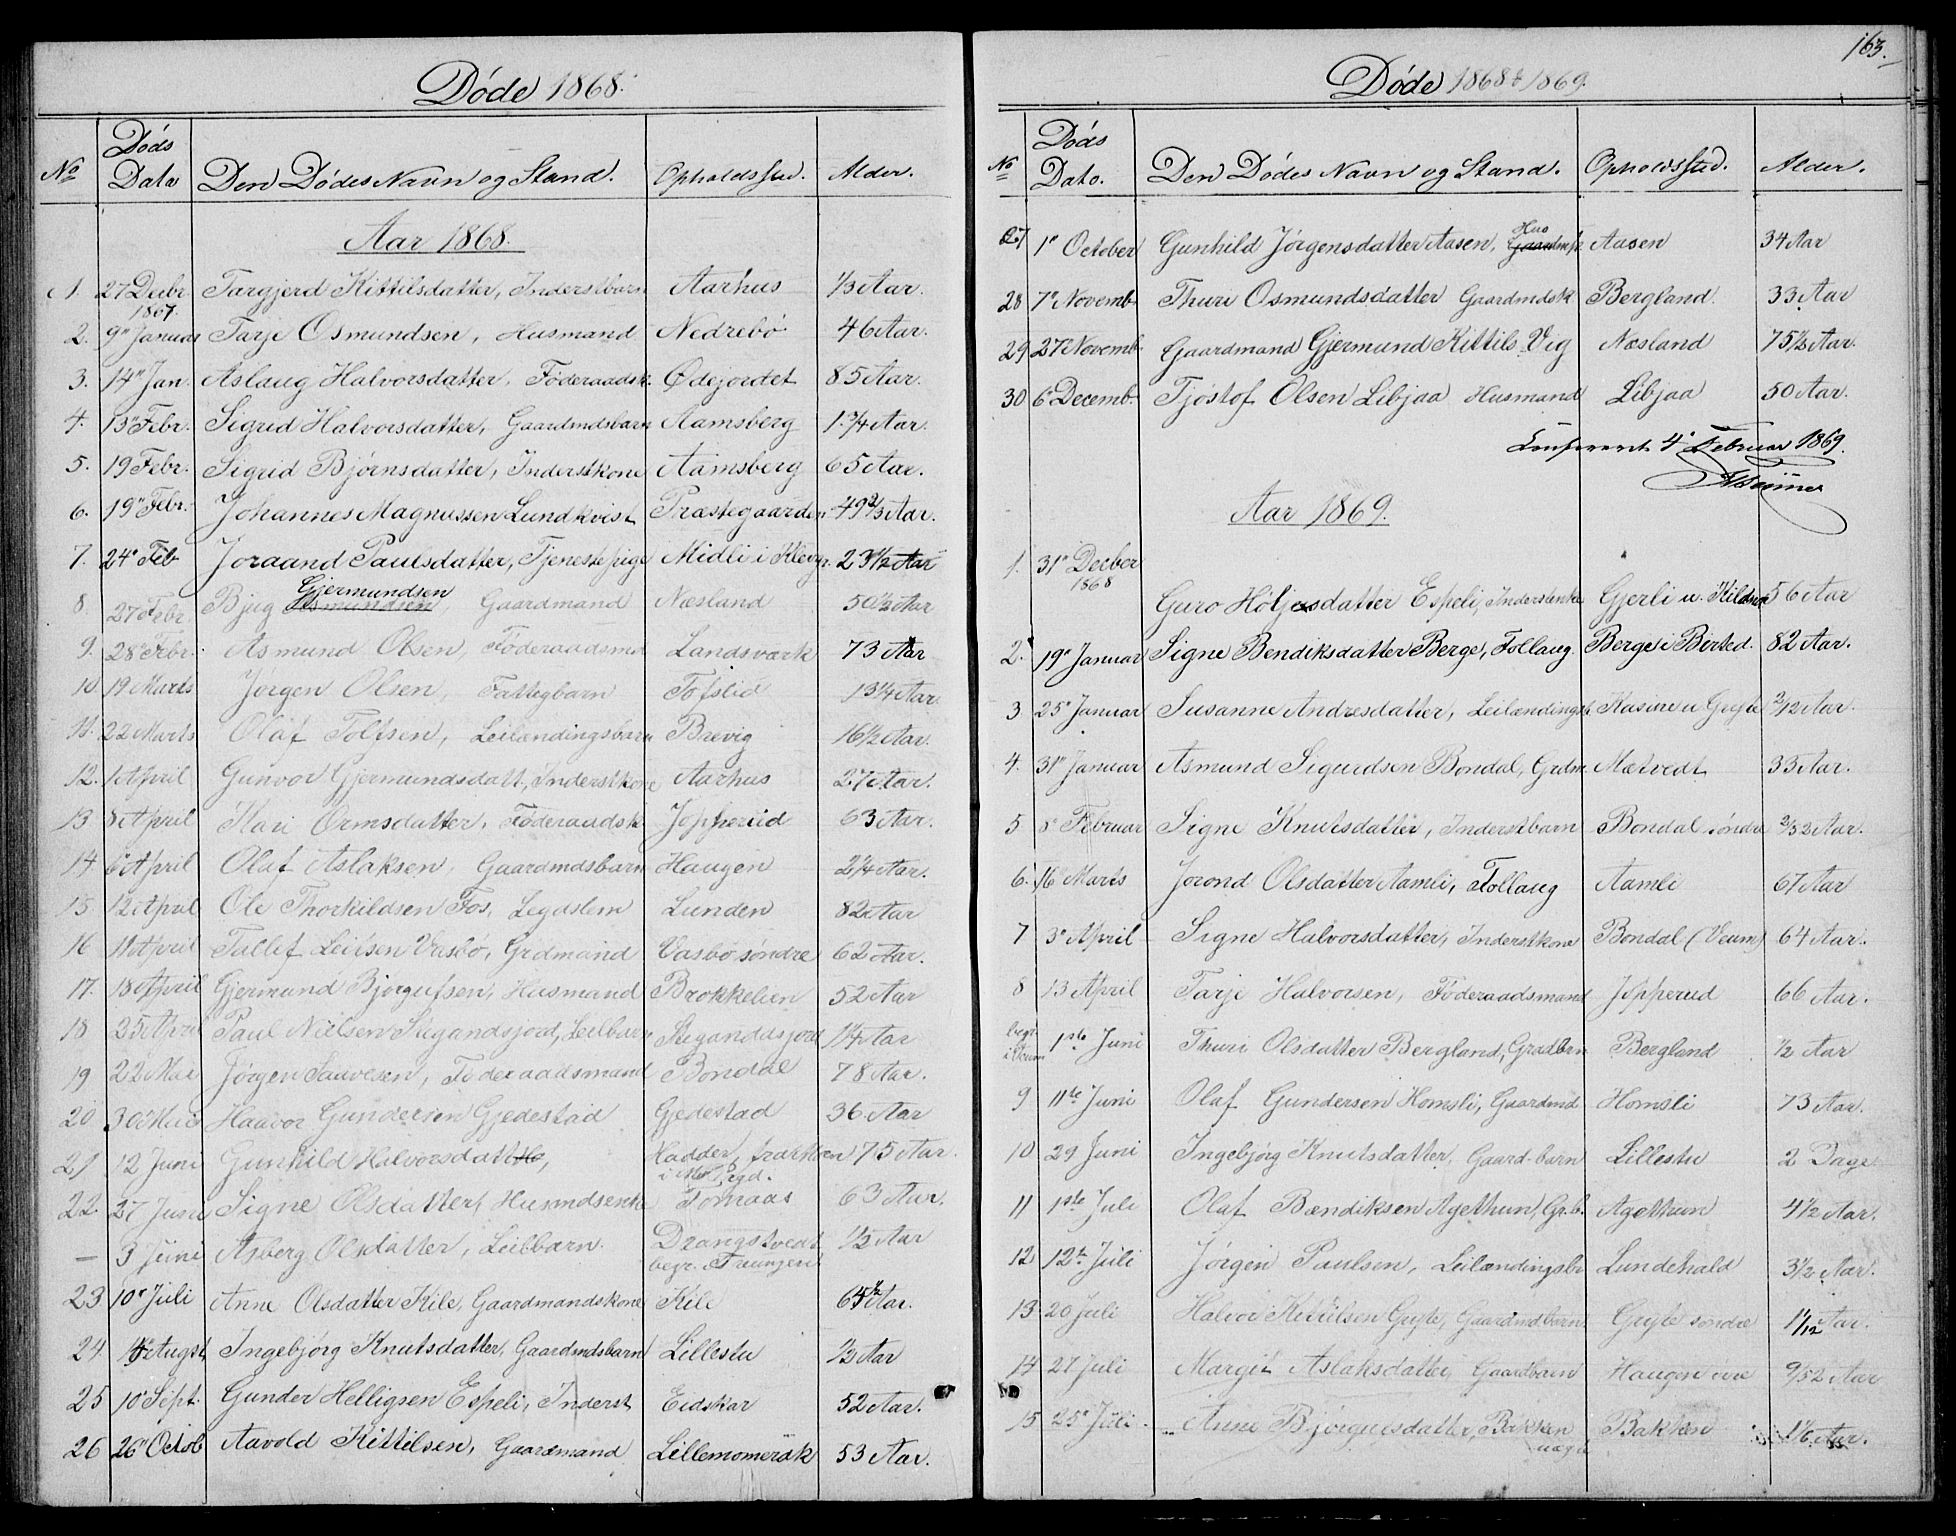 Døde 1868.
No Døds Dato Den Dødes Navn og Stand. Opholdssted. Alder.
Aar 1868.
1. 27 Decbr. 1867. Targjerd Kittilsdatter, Inderstbarn Aarhus 1/3 Aar.
2. 9de Januar Tarje Osmundsen, Husmand Nedrebö 46 Aar.
3. 14de Jan. Aslaug Halvorsdatter, Föderaadsk. Ødejordet 85 Aar.
4. 13de Febr. Sigrid Halvorsdatter, Gaardmdsbarn Aamsberg 1 3/4 Aar.
5. 19 Febr. Sigrid Bjørnsdatter, Inderstkone Aamsberg 65 Aar.
6. 19de Febr. Johannes Magnussen Lundkvist Præstegaarden 49 2/3 Aar.
7. 24de Feb Joraand Paulsdatter, Tjenestepige Midli i 23 1/2 Aar
8. 27 Febr. Bjug Osmundsen Gjermundsen, Gaardmand Næsland 50 1/2 Aar
9. 28 Febr. Asmund Olsen, Föderaadsmd Landsværk 73 Aar
10. 19 Marts Jørgen Olsen, Fattigbarn Tofslid 13 1/4 Aar.
11. 22 Marts Olaf Tolfsen, Leilændingsbarn Brevig 16 1/2 Aar.
12. 1 April Gunvor Gjermundsdatt., Inderstkone Aarhus 27 Aar.
13 8 April Kari Ormsdatter, Föderaadsk Jopperud 63 Aar.
14 6 April Olaf Aslaksen, Gaardmdsbarn Haugen 2 1/4 Aar.
15 12 April Ole Thorkildsen Fos, Legdslem Lunden 82 Aar
16 11 April Tallef Leifsen Vasbø, Grdmand Vasbø søndre 62 Aar.
17. 18 April Gjermund Bjørgufsen, Husmand Brokkelien 52 Aar
18 25 April Paul Nielsen, Leilbarn 1/4 Aar
19 22 Mai Jørgen Sauvesen, Föderaadsmand Bondal 78 Aar.
20 30 Mai Haavor Gundersen Gjedestad Gjedestad 36 Aar
21 12 Juni Gunhild Halvorsdatter, Hadder, i Mo Pregd. 75 Aar.
22. 27 Juni Signe Olsdatter, Husmdsenke Tomaas 63 Aar.
— 3 Juni Asberg Olsdatter, Leilbarn. Drangstvedt begr. i Treungen 1/2 Aar
23 10de Juli Anne Olsdatter Kile, Gaardmandskone Kile 65 1/2 Aar.
24. Augst Ingebjörg Knutsdatter, Gaardmdsbarn Lillestu 1/2 Aar
25 10 Sept. Gunder Helligsen Espeli, Inderst Eidskar 52 Aar.
26 26de Octob Aavold Kittilsen, Gaardmand Lillemomerak 53 Aar.
163.
Døde 1868 & 1869.
No Døds Dato. Den Dødes Navn og Stand. Opholdssted. Alder.
27 1e October Gunhild Jørgensdatter Aasen, Hus Aasen 34 Aar
28 7de Novemb. Thuri Osmundsdatter Gaardmdsk Bergland 33 Aar
29 27de Novemb. Gaardmand Gjermund Kittils. Vig Næsland 75 1/2 Aar.
30 6de Decemb. Tjöstof Olsen Libjaa Husmand Libjaa 50 Aar.
Confereret 4de Februar 1869.
Aar 1869.
1. 31de Decber 1868 Guro Höljesdatter Espeli, Inderstenke Gjerli u. Kildal 56 Aar
2. 19de Januar Signe Bendiksdatter Berge, Follaug Berge i Birted. 82 Aar.
3 25de Januar Susanne Andresdatter, Leilændingsb. Kasine u Gryte 2/12 Aar.
4. 31te Januar Asmund Sigurdsen Bondal, Grdm. Mætvedt 33 Aar.
5 8de Februar Signe Knutsdatter, Inderstbarn Bondal søndre 2/52 Aar.
6. 16 Marts Jorond Olsdatter Aamli, Follaug Aamli 67 Aar
7 3de April Signe Halvorsdatter, Inderstkone Bondal (Veum) 64 Aar.
8 13 April Tarje Halvorsen, Föderaadsmand Jopperud 66 Aar.
begr. i Veum 1ste Juni Thuri Olsdatter Bergland, Grdbrn Bergland 1/2 Aar
9 11te Juni Olaf Gundersen Homsli, Gaardmd Homsli 73 Aar.
10 29 Juni Ingebjørg Knutsdatter, Gaard-barn Lillestu 2 Dage
11 1ste Juli Olaf Bendiksen Agethun, Gr.b. Agethun 4 1/2 Aar.
12 12te Juli Jørgen Paulsen, Leilændingsb. Lundehald 3 1/2 Aar.
13 20 Juli Halvor Kittilsen Gryte, Gaardmdbarn Gryte søndre 1 1/12 Aar.
14 27 Juli Margit Aslaksdatter, Gaardbarn Haugen øvre 9/52 Aar
15 25de Juli Anne Bjørgufsdatter, Bakken Bakken 1 1/6 Aar.